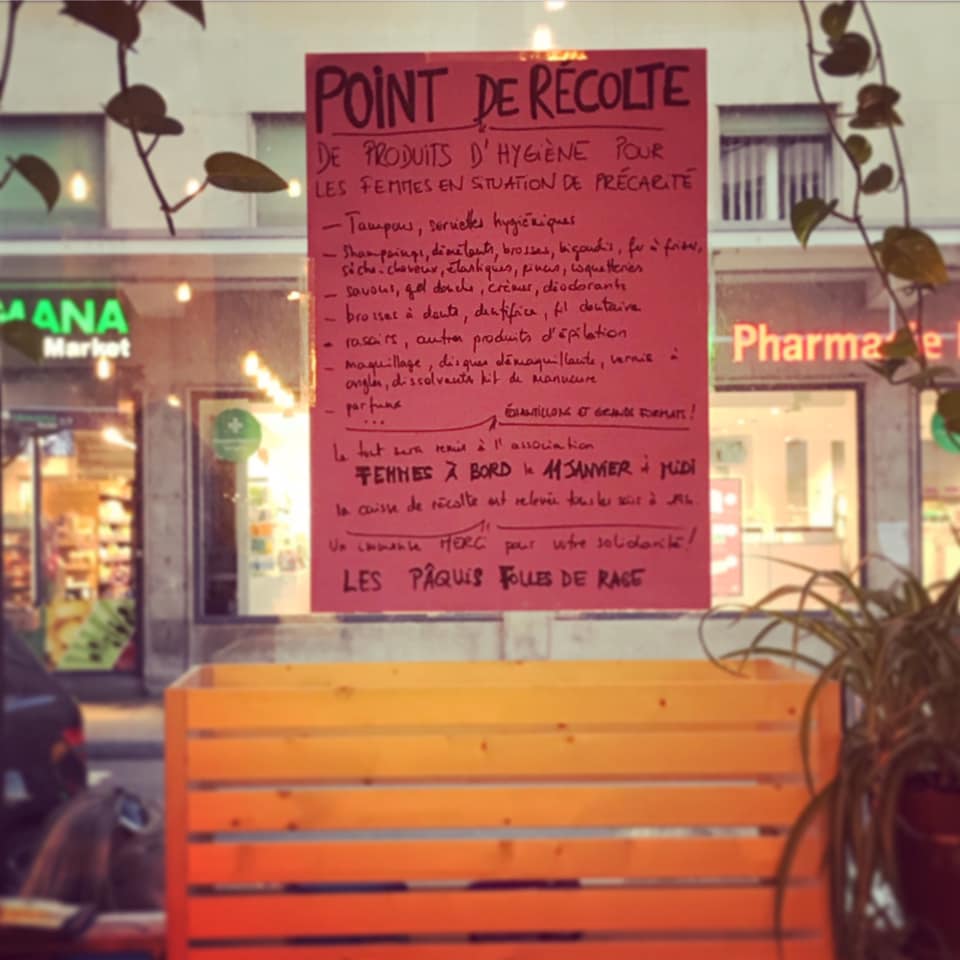 POINT DE RÉCOLTE
DE PRODUITS D'HYGIÈNE POUR
LES FEMMES EN SITUATION DE PRÉCARITÉ
– Tampons, serviettes hygiéniques
– Shampoings, démêlants, brosses, bigoudis, fer à friser,
sèche-cheveux, élastiques, pinces, coquetteries
– savons, gel douche, crèmes, déodorants
– brosses à dents, dentifrice, fil dentaire
– rasoirs, autres produits d'épilation
– maquillage, disques démaquillants, vernis à
ongles, dissolvants kit de manucure
– parfums
...
ÉCHANTILLONS ET GRANDS FORMATS!
Le tout sera remis à l'association
FEMMES À BORD le 11 JANVIER à MIDI
la caisse de récolte est relevée tous les soirs à
Un immense MERCI pour votre solidarité!
LES PÂQUIS FOLLES DE RAGE
MANA
Market
Pharmacie